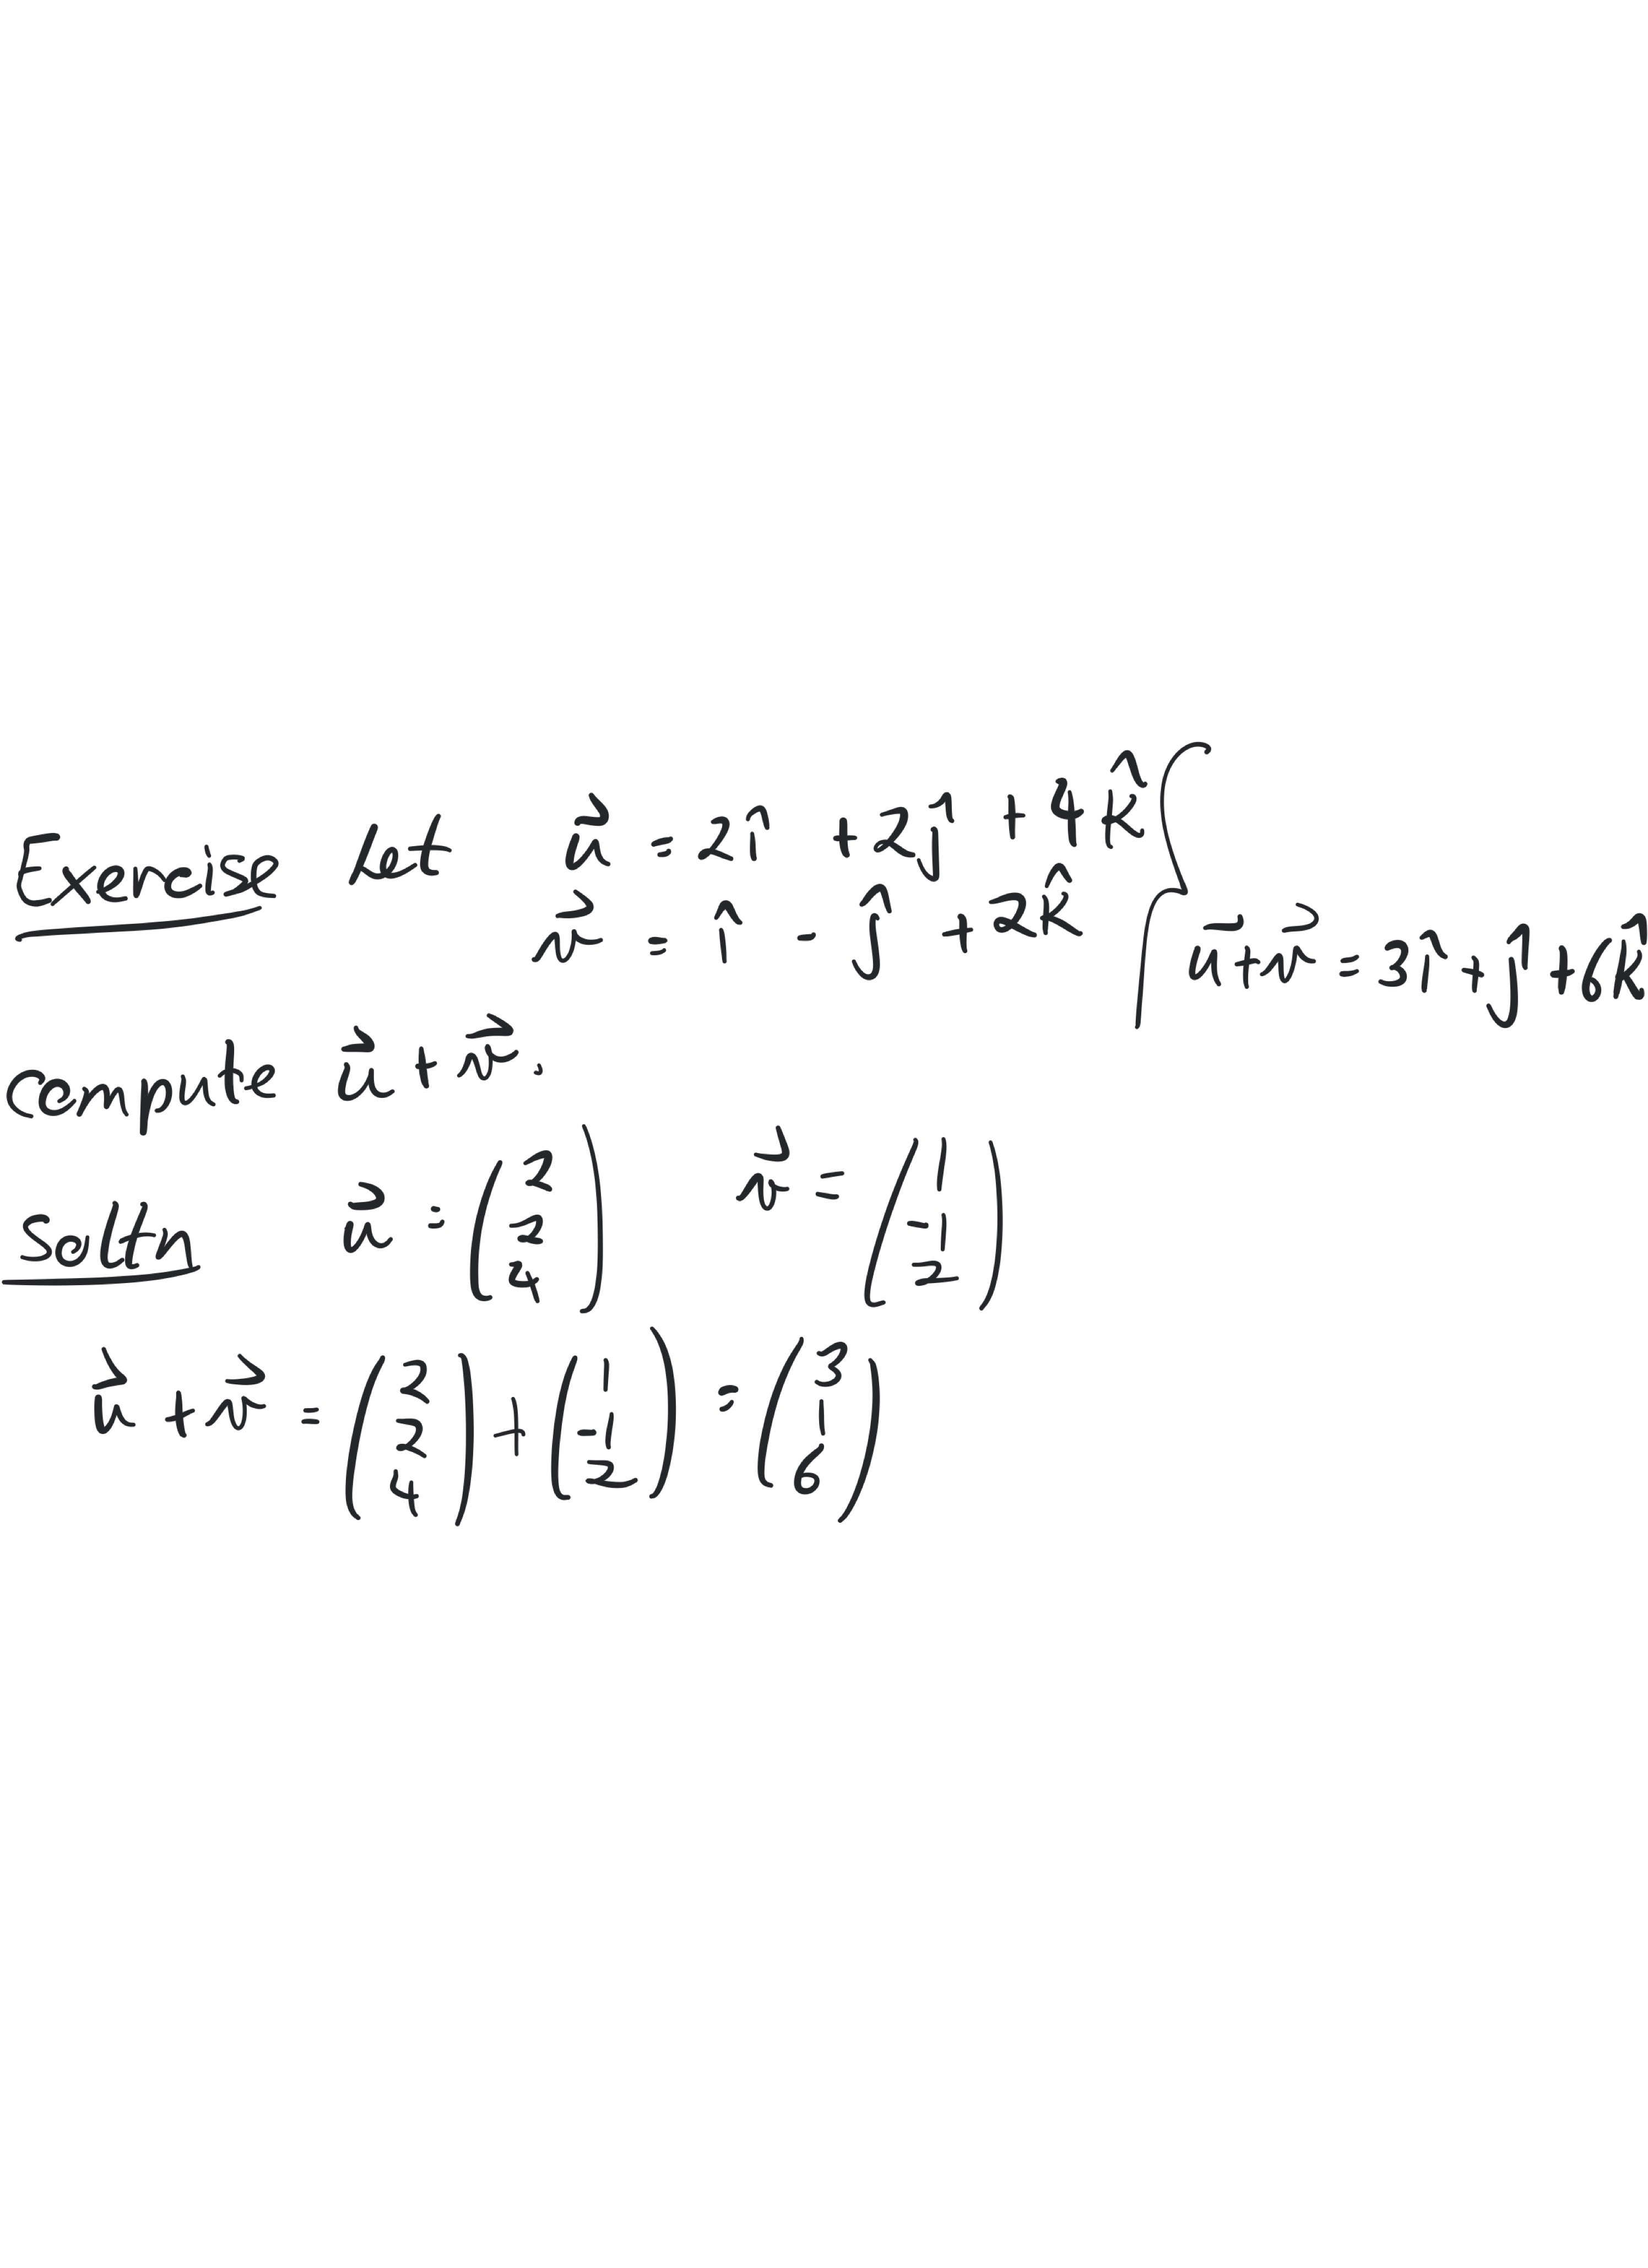 Exercise let u⃗ = 2î + 2ĵ + 4k̂
v⃗ = î - ĵ + 2k̂
u⃗ + v⃗ = 3î + ĵ + 6k̂
Compute u⃗ + v⃗.
Soltn u⃗ = (2 2 4) v⃗ = (1 -1 2)
u⃗ + v⃗ = (2 2 4) + (1 -1 2) = (3 1 6)